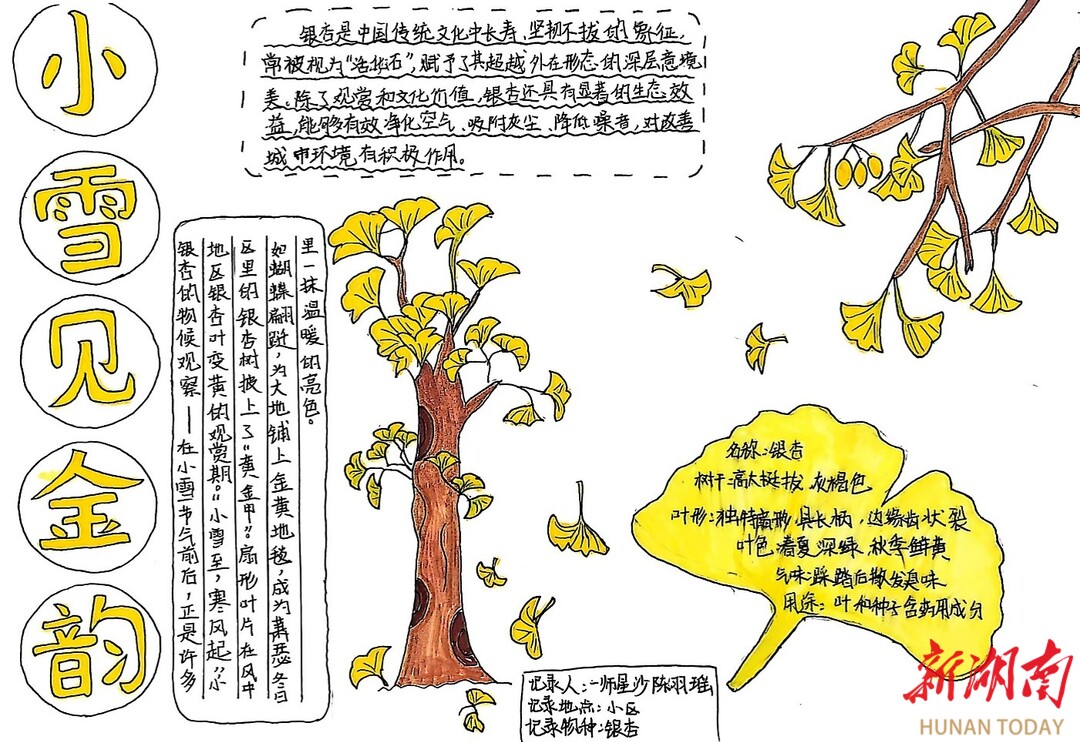 小
雪
见
金
韵
银杏是中国传统文化中长寿、坚韧不拔的象征,
常被视为“活化石”,赋予了其超越外在形态的深层意境
美。除了观赏和文化价值,银杏还具有显著的生态效
益,能够有效净化空气、吸附灰尘、降低噪音,对改善
城市环境有积极作用。
银杏的物候观察——在小雪节气前后,正是许多
地区银杏叶变黄的观赏期。“小雪至,寒风起”小
区里的银杏树披上了“黄金甲”。扇形叶片在风中
如蝴蝶翩跹,为大地铺上金黄地毯,成为萧瑟冬日
里一抹温暖的亮色。
名称:银杏
树干:高大挺拔 灰褐色
叶形:独特扇形 具长柄,边缘齿状裂
叶色:春夏深绿 秋季鲜黄
气味:踩踏后散发臭味
用途:叶和种子含药用成分
记录人:一师星沙 陈羽瑶
记录地点:小区
记录物种:银杏
新湖南
HUNAN TODAY